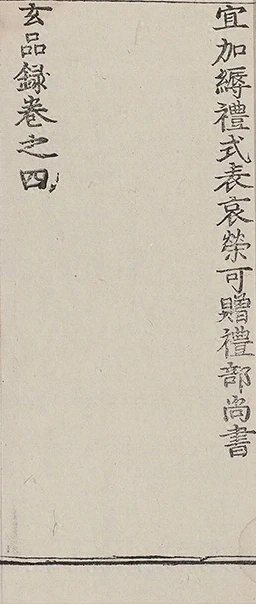 宜加縟禮式表哀榮可贈禮部尚書
玄品録卷之四